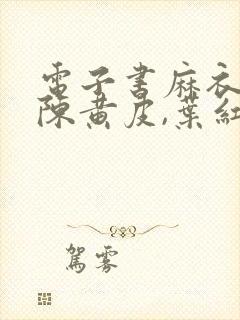 電子書麻衣
陳黃皮,葉紅
駕霧